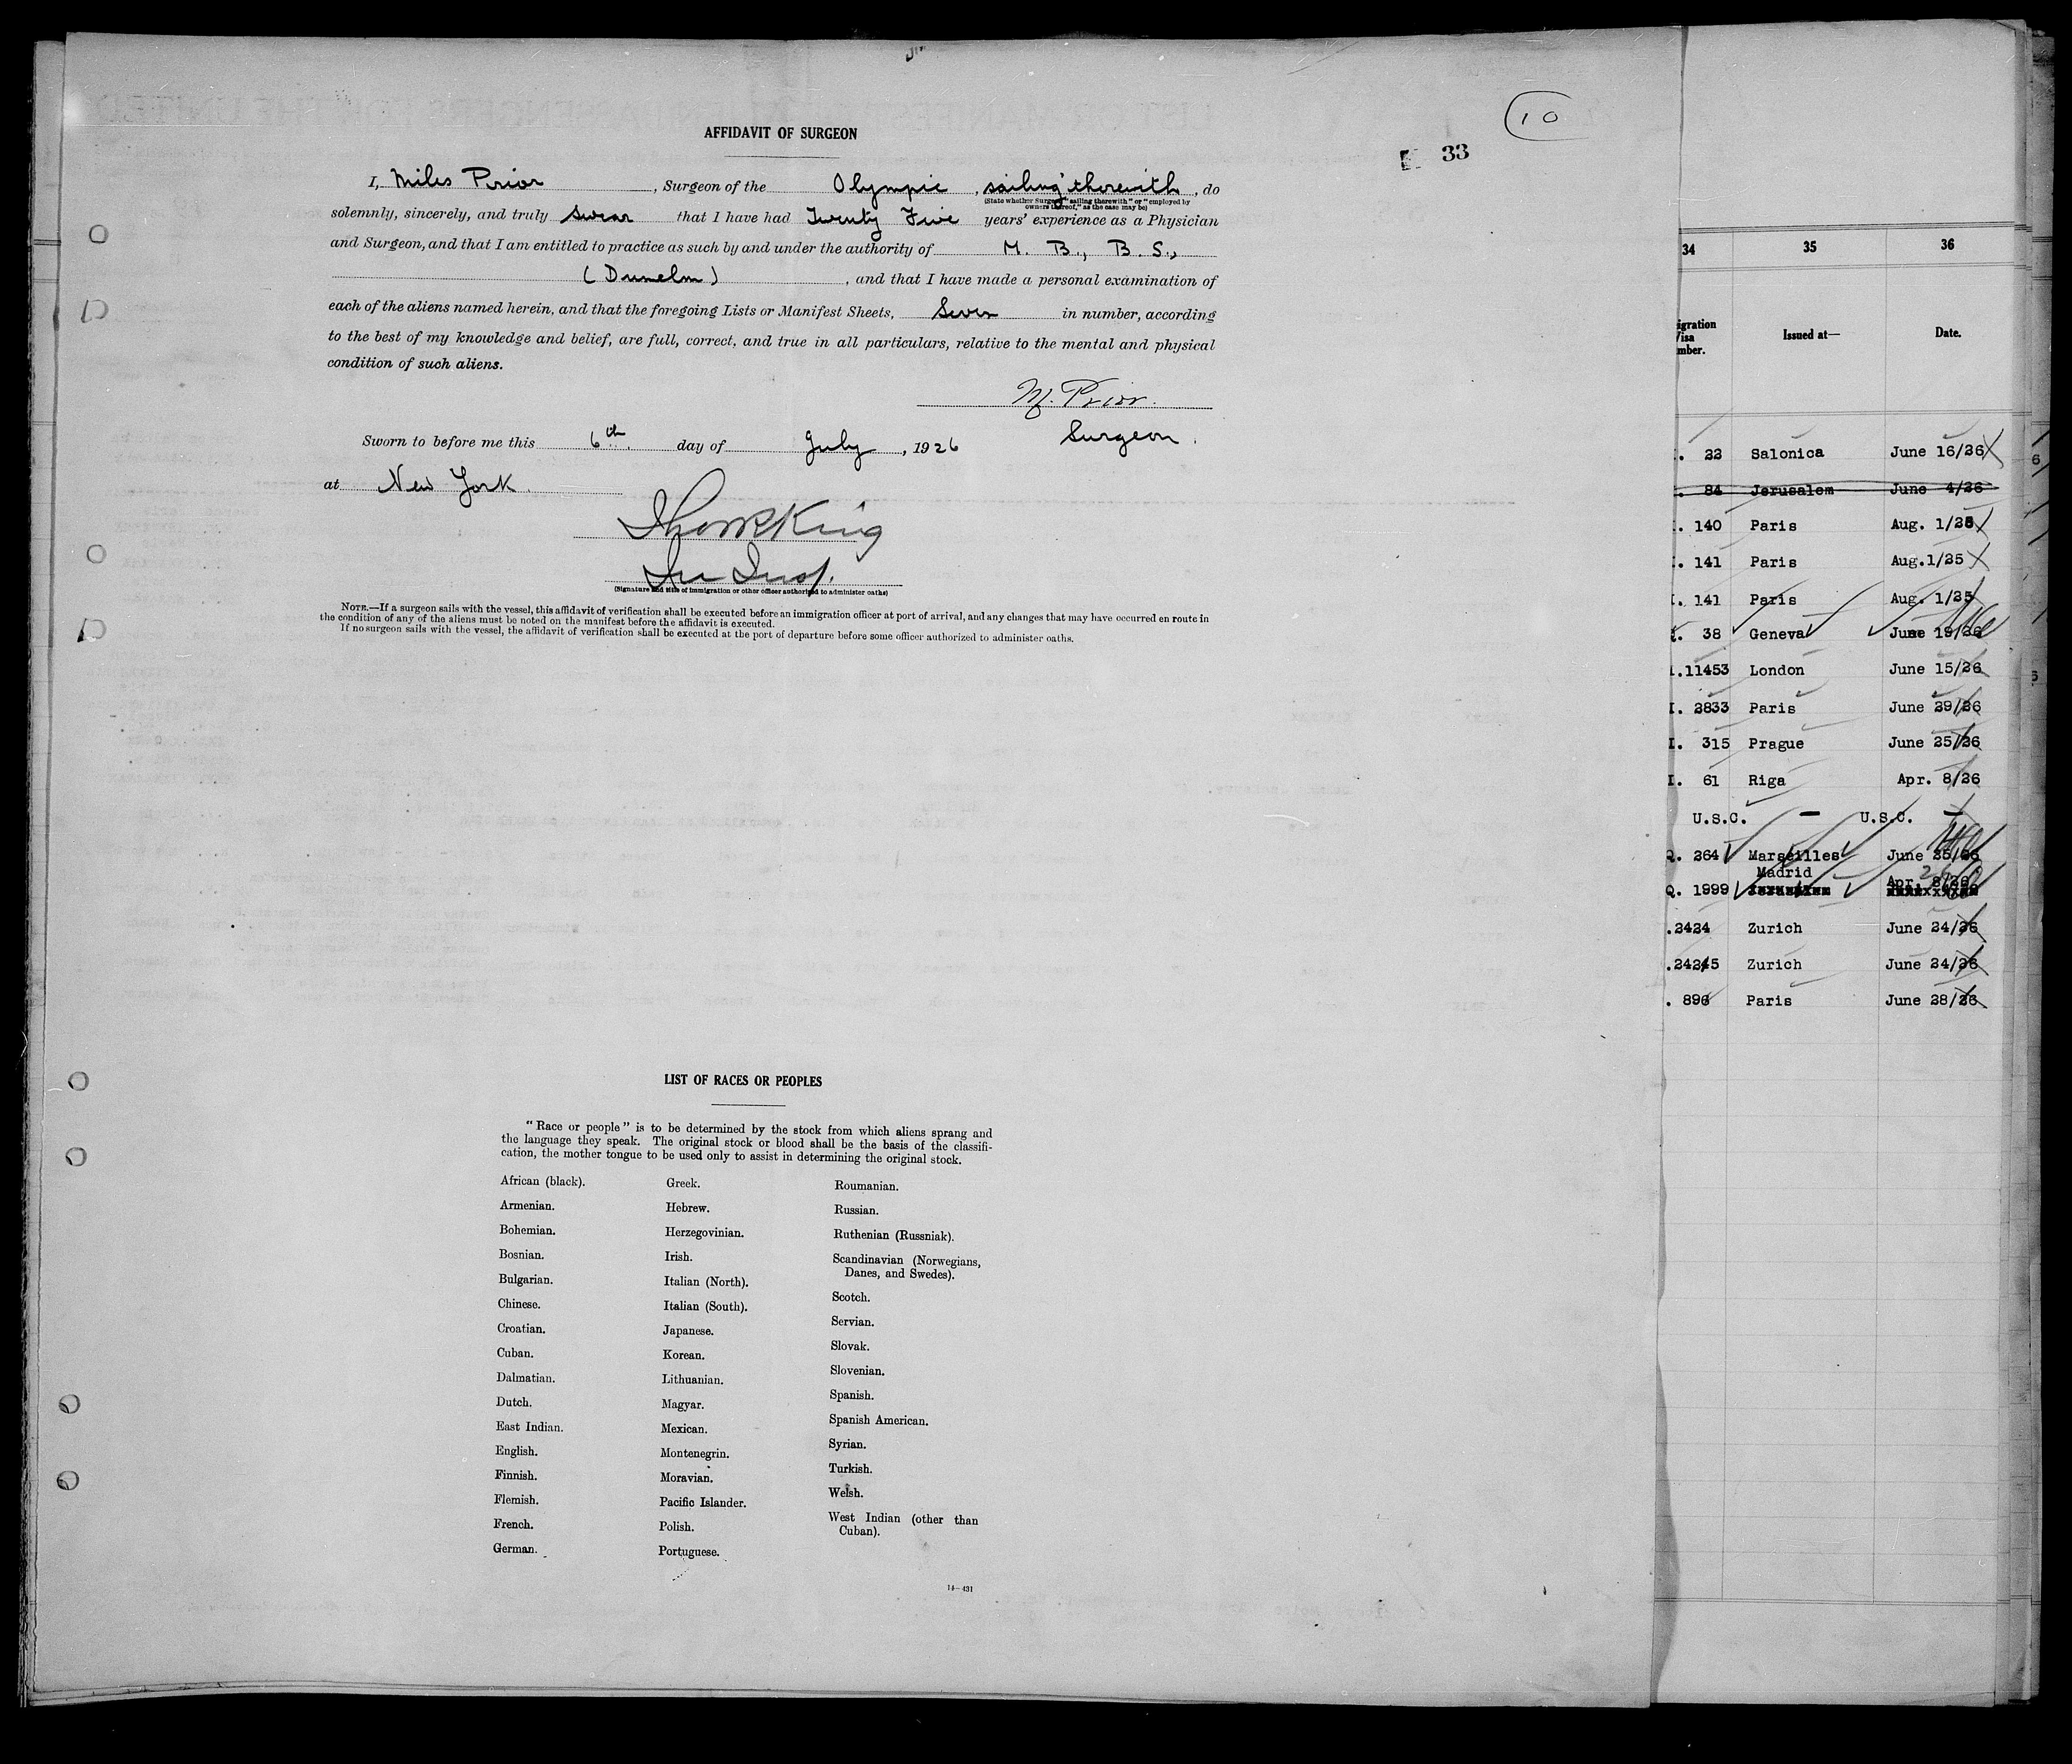 10
33
AFFIDAVIT OF SURGEON
I, Miles Prior, Surgeon of the Olympic, sailing therewith, do
(State whether Surgeon "sailing therewith" or "employed by
owners thereof," as the case may be)
solemnly, sincerely, and truly swear that I have had Twenty Five years' experience as a Physician
and Surgeon, and that I am entitled to practice as such by and under the authority of M. B., B. S.,
(Dunelm), and that I have made a personal examination of
each of the aliens named herein, and that the foregoing Lists or Manifest Sheets, Seven in number, according
to the best of my knowledge and belief, are full, correct, and true in all particulars, relative to the mental and physical
condition of such aliens.
M. Prior.
Surgeon.
Sworn to before me this 6th. day of July, 1926
at New York.
(Signature and title of immigration or other officer authorized to administer oaths)
NOTE.—If a surgeon sails with the vessel, this affidavit of verification shall be executed before an immigration officer at port of arrival, and any changes that may have occurred en route in
the condition of any of the aliens must be noted on the manifest before the affidavit is executed.
If no surgeon sails with the vessel, the affidavit of verification shall be executed at the port of departure before some officer authorized to administer oaths.
LIST OF RACES OR PEOPLES
"Race or people" is to be determined by the stock from which aliens sprang and
the language they speak. The original stock or blood shall be the basis of the classifi-
cation, the mother tongue to be used only to assist in determining the original stock.
African (black).
Armenian.
Bohemian.
Bosnian.
Bulgarian.
Chinese.
Croatian.
Cuban.
Dalmatian.
Dutch.
East Indian.
English.
Finnish.
Flemish.
French.
German.
Greek.
Hebrew.
Herzegovinian.
Irish.
Italian (North).
Italian (South).
Japanese.
Korean.
Lithuanian.
Magyar.
Mexican.
Montenegrin.
Moravian.
Pacific Islander.
Polish.
Portuguese.
Roumanian.
Russian.
Ruthenian (Russniak).
Scandinavian (Norwegians,
Danes, and Swedes).
Scotch.
Servian.
Slovak.
Slovenian.
Spanish.
Spanish American.
Syrian.
Turkish.
Welsh.
West Indian (other than
Cuban).
14—431
34 35 36
igration
Visa
mber.
Issued at—
Date.
22 Salonica June 16/26
84 Jerusalem June 4/26
140 Paris Aug. 1/25
141 Paris Aug.1/25
141 Paris Aug. 1/25
38 Geneva June 19/26
11453 London June 15/26
I. 2833 Paris June 29/26
I. 315 Prague June 25/26
I. 61 Riga Apr. 8/26
U.S.C. — U.S.C. —
Q. 264 Marseilles June 25/26
Madrid
Q. 1999 Apr. 8/26
.2424 Zurich June 24/26
.2425 Zurich June 24/26
. 896 Paris June 28/26